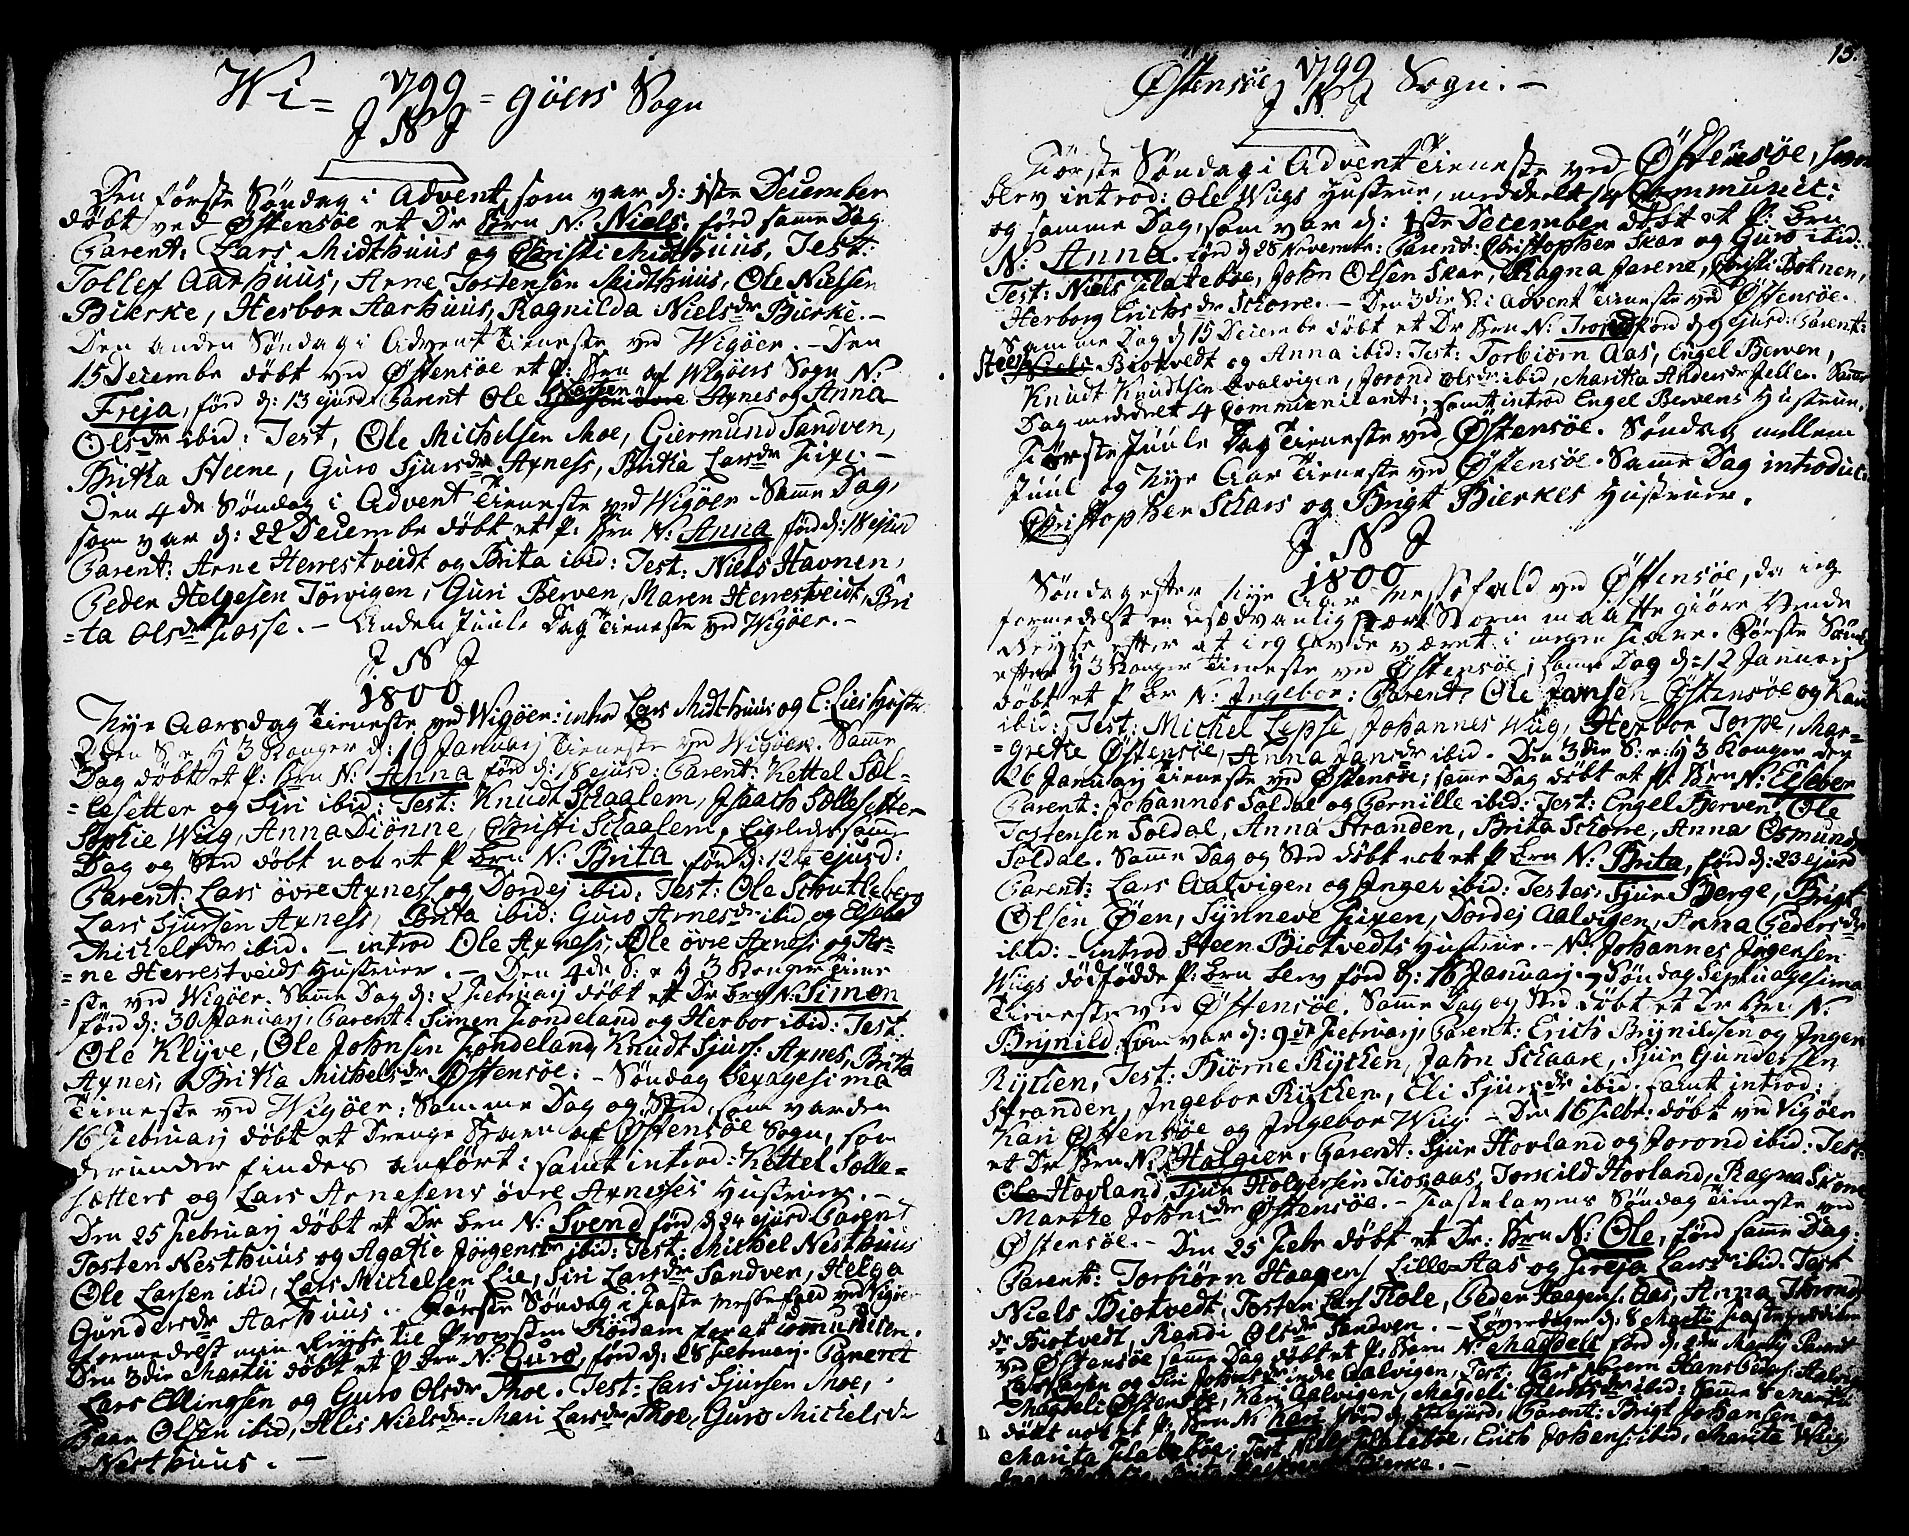 Wi= 1799 =göers Sogn
J N J
Den første Søndag i Advent, som var d: 1ste December
döbt ved Østensöe et Dr Brn N: Niels. förd samme Dag
Parent: Lars Midthuus og Christi Midthuus, Test:
Tollef Aarhuus, Arne Tostensen Midthuus, Ole Nielsen
Bierke, Herbor Aarhuus, Ragnilda Nielsdr Bierke. –
Den anden Søndag i Advent Tieneste ved Wigöer. – Den
15 Decembr döbt ved Østensöe et P: Brn af Wigöers Sogn N:
Freja, förd d: 13 ejusd: Parent Ole Axnes og Anna
Olsdr ibid: Test, Ole Michelsen Moe, Giermund Sandven,
Britha Steene, Guro Sjursdr Axness, Britha Larsdr Fixe. –
Den 4de Søndag i Advent Tieneste ved Wigöer. Samme Dag,
som var d: 22 Decembr döbt et P: Brn N: Anna förd d: ejusd
Parent: Arne Herrestveidt og Brita ibid: Test: Niels Havnen,
Peder Helgesen Törvigen, Guri Berven, Maren Herrestveidt, Bri
=ta Olsdr Fosse. – Anden Juule Dag Tieneste ved Wigöer. –
J N J
1800
Nye Aarsdag Tieneste ved Wigöer: introd Lars Midthuus og E: Lies Hustr
2den S: e: H 3 Konger d: 19 Januarij Tieneste ved Wigöer. Samme
Dag döbt et P: Brn N: Anna förd d: 18 ejusd: Parent: Kettel Sol-
=lesetter og Siri ibid: Test: Knudt Skaalem, Isaach Sollesetter
Sophie Wiig, Anna Diönne, Christi Skaalem, Ligeledes samme
Dag og Sted döbt nok et P Brn N: Brita förd d: 12te ejusd:
Parent: Lars övre Axness og Dordej ibid: Test: Ole Schutleberg
Lars Sjursen Axness, Brita ibid: Guro Arnesdr ibid og Elsebe
Michelsdr ibid. – introd Ole Axness, Ole övre Axness og Ar=
=ne Herrestveids Hustruer. – Den 4de S: e H 3 Konger Tiene
=ste ved Wigöer. Samme Dag d: 2 Februarij döbt et Dr Brn N: Simon
förd d: 30 Januarij, Parent: Simen Fondeland og Herbor ibid: Test:
Ole Klyve, Ole Johnsen Fondeland, Knudt Sjurs: Axnes, Brita
Axnes, Britha Michelsdr Østensöe: – Søndag Sexagesima
Tieneste ved Wigöer: Samme Dag og Sted, som var den
16 Februarij döbt et Drenge Barn af Østensöe Sogn, som
derunder findes anfört: samt introd: Kettel Solle=
sætters og Lars Arnesens övre Axnesses Hustruer. –
Den 25 Februarij döbt et Dr Brn N: Svend förd d 24 ejusd Parent
Tosten Nesthuus og Agatie Jörgensdr ibid: Test: Michel Nesthuus
Ole Larsen ibid, Lars Michelsen Lie, Siri Larsdr Sandven, Helga
Gundersdr Aarhuus. – Første Søndag i Faste Messefald ved Vigöer
formedelst min Reyse til Provsten for at Communicere.
Den 3die Martii döbt et P Brn N: Guro, förd d: 28 Februarij. Parent
Lars Ellingsen og Guro Olsdr Moe. Test: Lars Sjursen Moe,
Olsen ibid, Alis Nielsdr= Mari Larsdr Moe, Guro Michelsdr
Nesthuus. –
13.
Østensöe 1799 Sogn. –
J N J
Første Søndag i Advent Tieneste ved Østensöe, som
blev introd: Ole Wiigs Hustrue, meddeelt 14 Communic:
og samme Dag, som var d: 1ste December döbt et P: Brn
N: Anna. förd d 28 Novembr: Parent: Christopher Skar og Guro ibid:
Test: Niels Flatebøe, John Olsen Skar, Ragna Jarene, Christi Botnen,
Herborg Erichsdr Skorre. – Den 3die S: i Advent Tieneste ved Østensöe.
Samme Dag d 15 Decembr döbt et Dr Brn N: förd d 9 ejusd: Parent:
Steen Biotvedt og Anna ibid: Test: Torbiörn Aas, Engel Berven,
Knudt Knudtsen Qvalvigen, Jorond Olsdr ibid, Maritha Andersdr Felle. Samme
Dag meddeelt 4 Communicant: samt introd Engel Bervens Hustrue.
Første Juule Dag Tieneste ved Østensöe. Søndag mellem
Juul og Nye Aar Tieneste ved Østensöe. Samme Dag introduc:
Christopher Skars og Brigt Bierkes Hustruer.
J N J
1800
Søndag efter Nye Aar Messefald ved Østensöe, da ieg
formedelst en usædvanlig stærk Storm maatte giöre Vende
Reyse efter at ieg havde været i megen Fare. Første Sønd:
efter H 3 Konger Tieneste ved Østensöe; samme Dag d: 12 Januarij
döbt et P Br N: Ingebor: Parent: Ole Jansen Østensöe og Kari
ibid: Test: Michel Lepse, Johannes Wiig, Herbor Torpe, Mar=
=grethe Østensöe, Anna Jansdr ibid. Den 3die S: e: H 3 Konger den
26 Januarij Tieneste ved Østensöe; samme Dag döbt et P: Brn N: Elseber
Parent: Johannes Soldal og Pernille ibid: Test: Engel Berven, Ole
Tostensen Soldal, Anna Stranden, Brita Skorre, Anna Osmundsdr
Soldal. Samme Dag og Sted döbt nok et P Brn N: Brita, förd d: 23 ejusd
Parent: Lars Aalvigen og Inger ibid: Testes: Sjur Berge, Brigt
Olsen Øen, Synneve Fixen, Dordej Aalvigen, Anna Pedersdr
ibid: – introd Steen Biotvedts Hustrue. – N: Johannes Jörgensen
Wiigs dödfödde P: Brn blev förd d: 16 Januarij. – Søndag Septuagesima
Tieneste ved Østensöe. Samme Dag og Sted döbt et Dr Brn N:
Brynild, som var d: 9de Februarij, Parent: Erich Brynildsen og Inger
Rykken, Test: Biörne Rykken, John Skaare, Sjur Gundersen
Stranden, Ingebor Rykken, Eli Sjursdr ibid. samt introd:
Kari Østensöe og Ingebor Wiig. – Den 16 Febr: döbt ved Vigöer
et Dr Brn N: Halgier, Parent: Sjur Hovland og Jorond ibid: Test:
Ole Hovland, Sjur Holgersen Tioflaas, Torkild Hovland, Ragna Skorre
Marthe Johnsdr Østensöe. – Fastelavens Søndag Tieneste ved
Østensöe. – Den 25 Febr döbt et Dr: Brn N: Ole, förd samme Dag:
Parent: Torbiörn Haagens Lille-Aas og Freja Larsdr ibid. Test
Niels Biotvedt, Tosten Lars Role, Peder Haagens: Aas, Anna Thronds
dr Biotvedt, Randi Olsdr Sandven. – Löverdagen d: 8 Martii Fasteprædiken
ved Østensöe samme Dag döbt et P: Brn N: Magdeli förd d: Martij Parent
Lars Larsen og Siri Johnsdr indre Aalvigen, Test: Hans Peders: Aalvigen
Magdeli Østensöe, Kari Aalvigen, Magdeli ibid: Samme 8 Martii
döbt nok et P: Brn N: Kari förd d: ejusd, Parent: Brigt Johansen og
Marita Flatebøe; Test Niels Flatebøe, Erich Johans: ibid, Marita Wiig
Bierke. –